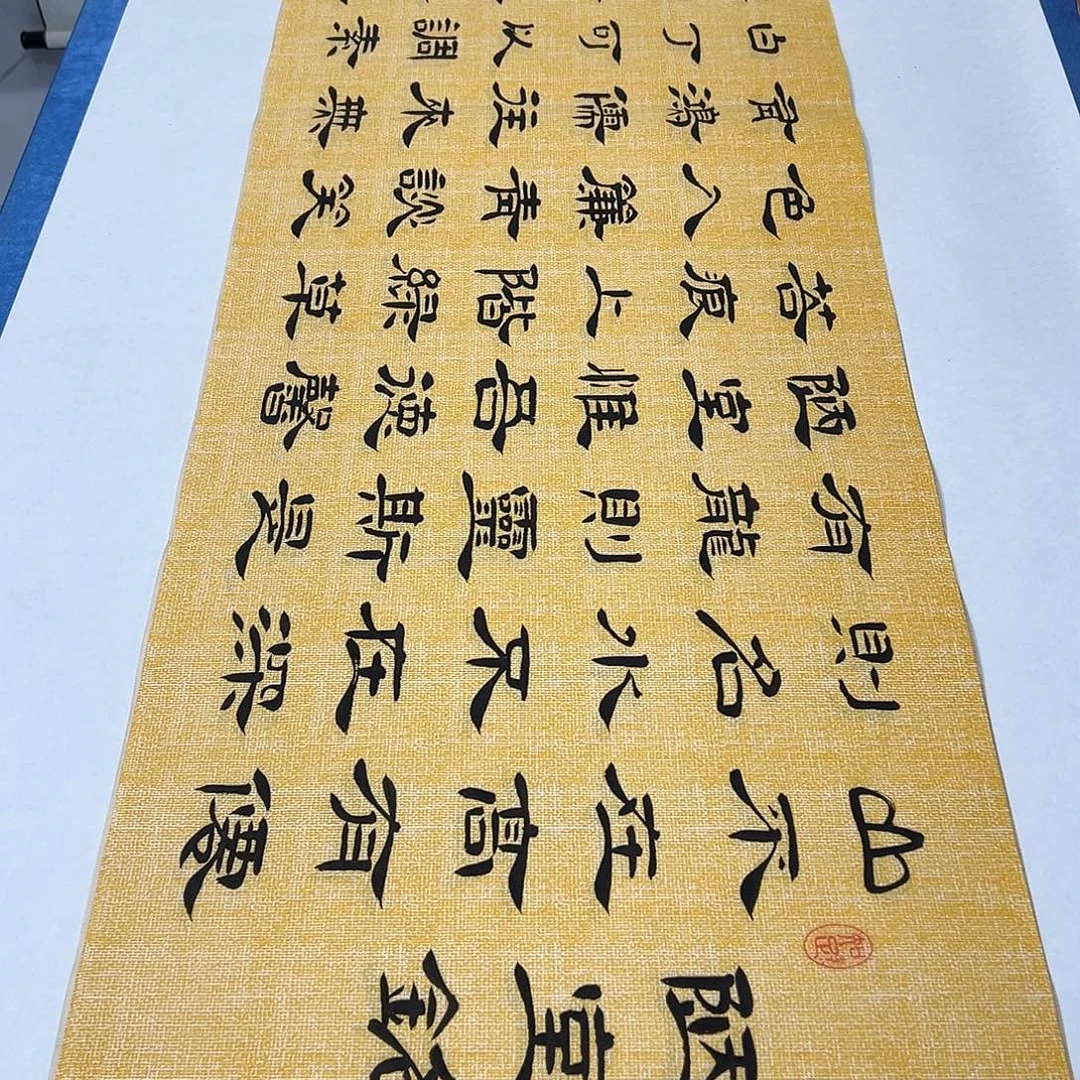 陋室銘
山不在高有僊
則名水不在深
有龍則靈斯是
陋室惟吾德馨
苔痕上階綠草
色入簾青談笑
有鴻儒往來無
白丁可以調素